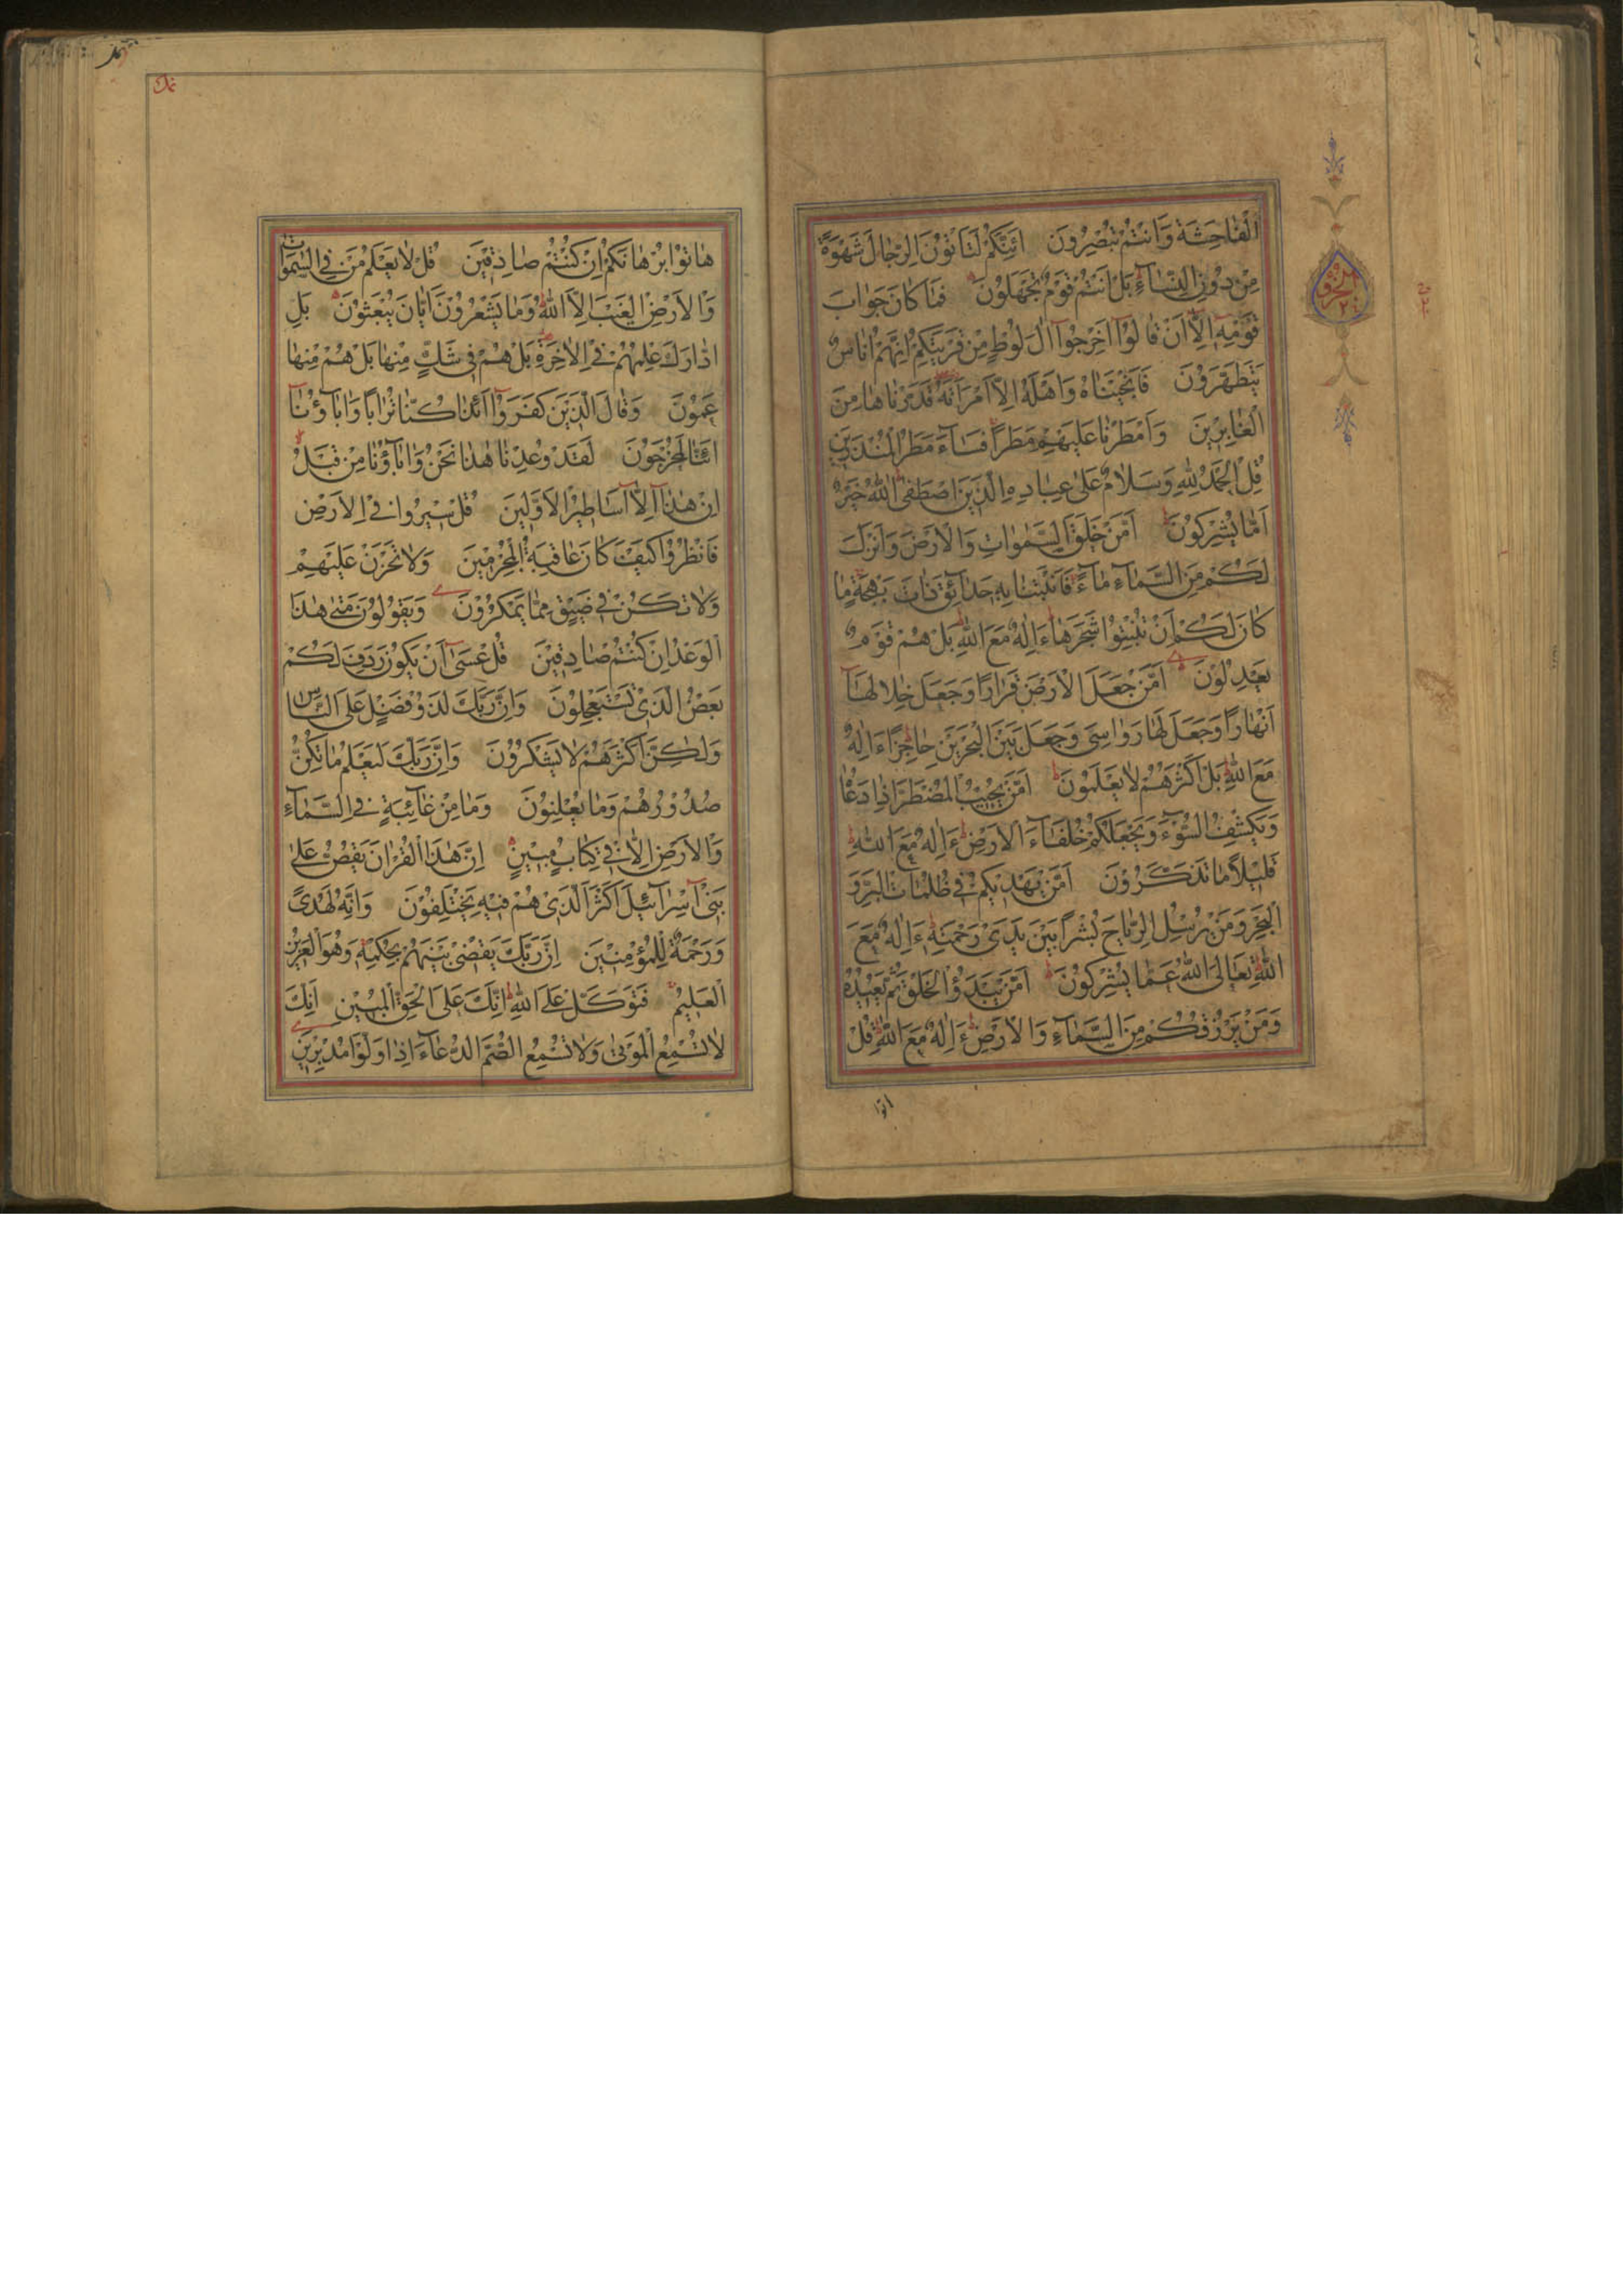 اَلْفَاحِشَةَ وَاَنْتُمْ تُبْصِرُونَ اَئِنَّكُمْ لَتَأْتُوْنَ الرِّجَالَ شَهْوَةً
مِنْ دُوْنِ النِّسَاۤءِ بَلْ اَنْتُمْ قَوْمٌ تَجْهَلُوْنَ فَمَا كَانَ جَوَابَ
قَوْمِهٖٓ اِلَّاۤ اَنْ قَالُوْٓا اَخْرِجُوْٓا اٰلَ لُوْطٍ مِنْ قَرْيَتِكُمْ اِنَّهُمْ اُنَاسٌ
يَتَطَهَّرُوْنَ فَاَنْجَيْنَاهُ وَاَهْلَهٗٓ اِلَّا امْرَاَتَهٗ قَدَّرْنَاهَا مِنَ
الْغَابِرِيْنَ وَاَمْطَرْنَا عَلَيْهِمْ مَطَرًا فَسَاۤءَ مَطَرُ الْمُنْذَرِيْنَ
قُلِ الْحَمْدُ لِلّٰهِ وَسَلَامٌ عَلٰى عِبَادِهِ الَّذِيْنَ اصْطَفٰى اٰللّٰهُ خَيْرٌ
اَمَّا يُشْرِكُوْنَ اَمَّنْ خَلَقَ السَّمٰوَاتِ وَالْاَرْضَ وَاَنْزَلَ
لَكُمْ مِنَ السَّمَاۤءِ مَاۤءً فَاَنْبَتْنَا بِهٖ حَدَاۤئِقَ ذَاتَ بَهْجَةٍ مَا
كَانَ لَكُمْ اَنْ تُنْبِتُوْا شَجَرَهَا ءَاِلٰهٌ مَعَ اللّٰهِ بَلْ هُمْ قَوْمٌ
يَعْدِلُوْنَ اَمَّنْ جَعَلَ الْاَرْضَ قَرَارًا وَجَعَلَ خِلَالَهَاۤ
اَنْهَارًا وَجَعَلَ لَهَا رَوَاسِيَ وَجَعَلَ بَيْنَ الْبَحْرَيْنِ حَاجِزًا ءَاِلٰهٌ
مَعَ اللّٰهِ بَلْ اَكْثَرُهُمْ لَا يَعْلَمُوْنَ اَمَّنْ يُجِيْبُ الْمُضْطَرَّ اِذَا دَعَاهُ
وَيَكْشِفُ السُّوْۤءَ وَيَجْعَلُكُمْ خُلَفَاۤءَ الْاَرْضِ ءَاِلٰهٌ مَعَ اللّٰهِ
قَلِيْلًا مَا تَذَكَّرُوْنَ اَمَّنْ يَهْدِيْكُمْ فِيْ ظُلُمَاتِ الْبَرِّ وَ
الْبَحْرِ وَمَنْ يُرْسِلُ الرِّيَاحَ بُشْرًا بَيْنَ يَدَيْ رَحْمَتِهٖ ءَاِلٰهٌ مَعَ
اللّٰهِ تَعَالَى اللّٰهُ عَمَّا يُشْرِكُوْنَ اَمَّنْ يَبْدَؤُا الْخَلْقَ ثُمَّ يُعِيْدُهٗ
وَمَنْ يَرْزُقُكُمْ مِنَ السَّمَاۤءِ وَالْاَرْضِ ءَاِلٰهٌ مَعَ اللّٰهِ قُلْ
هَاتُوْا بُرْهَانَكُمْ اِنْ كُنْتُمْ صَادِقِيْنَ قُلْ لَا يَعْلَمُ مَنْ فِي السَّمٰوَاتِ
وَالْاَرْضِ الْغَيْبَ اِلَّا اللّٰهُ وَمَا يَشْعُرُوْنَ اَيَّانَ يُبْعَثُوْنَ بَلِ
ادَّارَكَ عِلْمُهُمْ فِي الْاٰخِرَةِ بَلْ هُمْ فِيْ شَكٍّ مِنْهَا بَلْ هُمْ مِنْهَا
عَمُوْنَ وَقَالَ الَّذِيْنَ كَفَرُوْٓا اَئِذَا كُنَّا تُرَابًا وَاٰبَاۤؤُنَاۤ
اَئِنَّا لَمُخْرَجُوْنَ لَقَدْ وُعِدْنَا هٰذَا نَحْنُ وَاٰبَاۤؤُنَا مِنْ قَبْلُ
اِنْ هٰذَاۤ اِلَّاۤ اَسَاطِيْرُ الْاَوَّلِيْنَ قُلْ سِيْرُوْا فِي الْاَرْضِ
فَانْظُرُوْا كَيْفَ كَانَ عَاقِبَةُ الْمُجْرِمِيْنَ وَلَا تَحْزَنْ عَلَيْهِمْ
وَلَا تَكُنْ فِيْ ضَيْقٍ مِمَّا يَمْكُرُوْنَ وَيَقُوْلُوْنَ مَتٰى هٰذَا
الْوَعْدُ اِنْ كُنْتُمْ صَادِقِيْنَ قُلْ عَسٰٓى اَنْ يَكُوْنَ رَدِفَ لَكُمْ
بَعْضُ الَّذِيْ تَسْتَعْجِلُوْنَ وَاِنَّ رَبَّكَ لَذُوْ فَضْلٍ عَلَى النَّاسِ
وَلٰكِنَّ اَكْثَرَهُمْ لَا يَشْكُرُوْنَ وَاِنَّ رَبَّكَ لَيَعْلَمُ مَا تُكِنُّ
صُدُوْرُهُمْ وَمَا يُعْلِنُوْنَ وَمَا مِنْ غَاۤئِبَةٍ فِي السَّمَاۤءِ
وَالْاَرْضِ اِلَّا فِيْ كِتَابٍ مُبِيْنٍ اِنَّ هٰذَا الْقُرْاٰنَ يَقُصُّ عَلٰى
بَنِيْٓ اِسْرَاۤئِيْلَ اَكْثَرَ الَّذِيْ هُمْ فِيْهِ يَخْتَلِفُوْنَ وَاِنَّهٗ لَهُدًى
وَرَحْمَةٌ لِلْمُؤْمِنِيْنَ اِنَّ رَبَّكَ يَقْضِيْ بَيْنَهُمْ بِحُكْمِهٖ وَهُوَ الْعَزِيْزُ
الْعَلِيْمُ فَتَوَكَّلْ عَلَى اللّٰهِ اِنَّكَ عَلَى الْحَقِّ الْمُبِيْنِ اِنَّكَ
لَا تُسْمِعُ الْمَوْتٰى وَلَا تُسْمِعُ الصُّمَّ الدُّعَاۤءَ اِذَا وَلَّوْا مُدْبِرِيْنَ